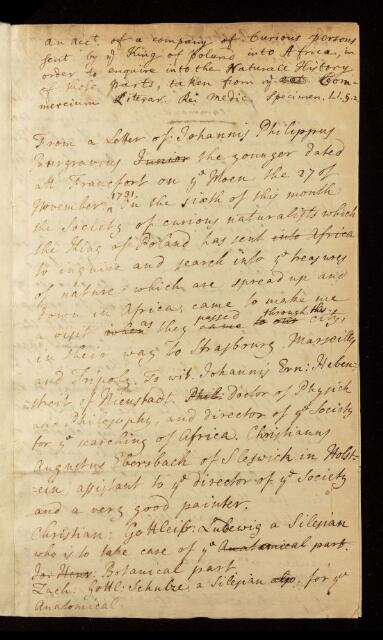 an Acct. of a company of Curious persons
sent by ye King of Poland into Africa, in
order to enquire into the Naturall History
of those parts, taken from ye Com-
mercium Literar. Rei Medic Specimen. LI. §.2.
From a Letter of Johannis Philippus
Burgravius Junior the younger dated
att Francfort on ye Moen the 27 of
November 1731. On the sixth of this month
the Society of curious naturalists which
the King of Poland has sent into Africa
to inquire and search into ye treasures
of nature which are spread up and
down in Africa, came to make me
a visit when as they came passed to our through this City,
in their way to Strasbourg Marseilles
and Tripoly. To wit. Johannis Ern: Heben-
streit of Nieustadt. Phil: Doctor of Physick
and Philosophy, and director of ye Society
for ye searching of Africa. Christianus
Augustus Ebersbach of Sleswich in Holst-
ein, assistant to ye director of ye Society
and a very good painter.
Christian: Gottleib: Ludewig a Silesian
who is to take case of ye Anatomical part.
Jo: Henr: Botanical part.
Zach: Gottl: Schulze, a Silesian also, for ye
Anatomical